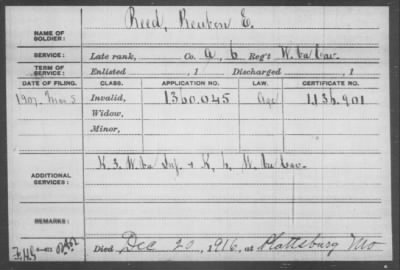 Reed, Reuben E.
NAME OF SOLDIER:
SERVICE: Late rank, Co. A, 6 Reg't W. Va Cav.
TERM OF SERVICE: Enlisted , 1 Discharged , 1
DATE OF FILING. CLASS. APPLICATION NO. LAW. CERTIFICATE NO.
1907. Mar 5 Invalid, 1360.045 Age 1.136.901
Widow,
Minor,
ADDITIONAL SERVICES: K. 3. W. Va Inf. & K, 6, W. Va Cav.
REMARKS:
Died Dec 20, 1916, at Plattsburg Mo